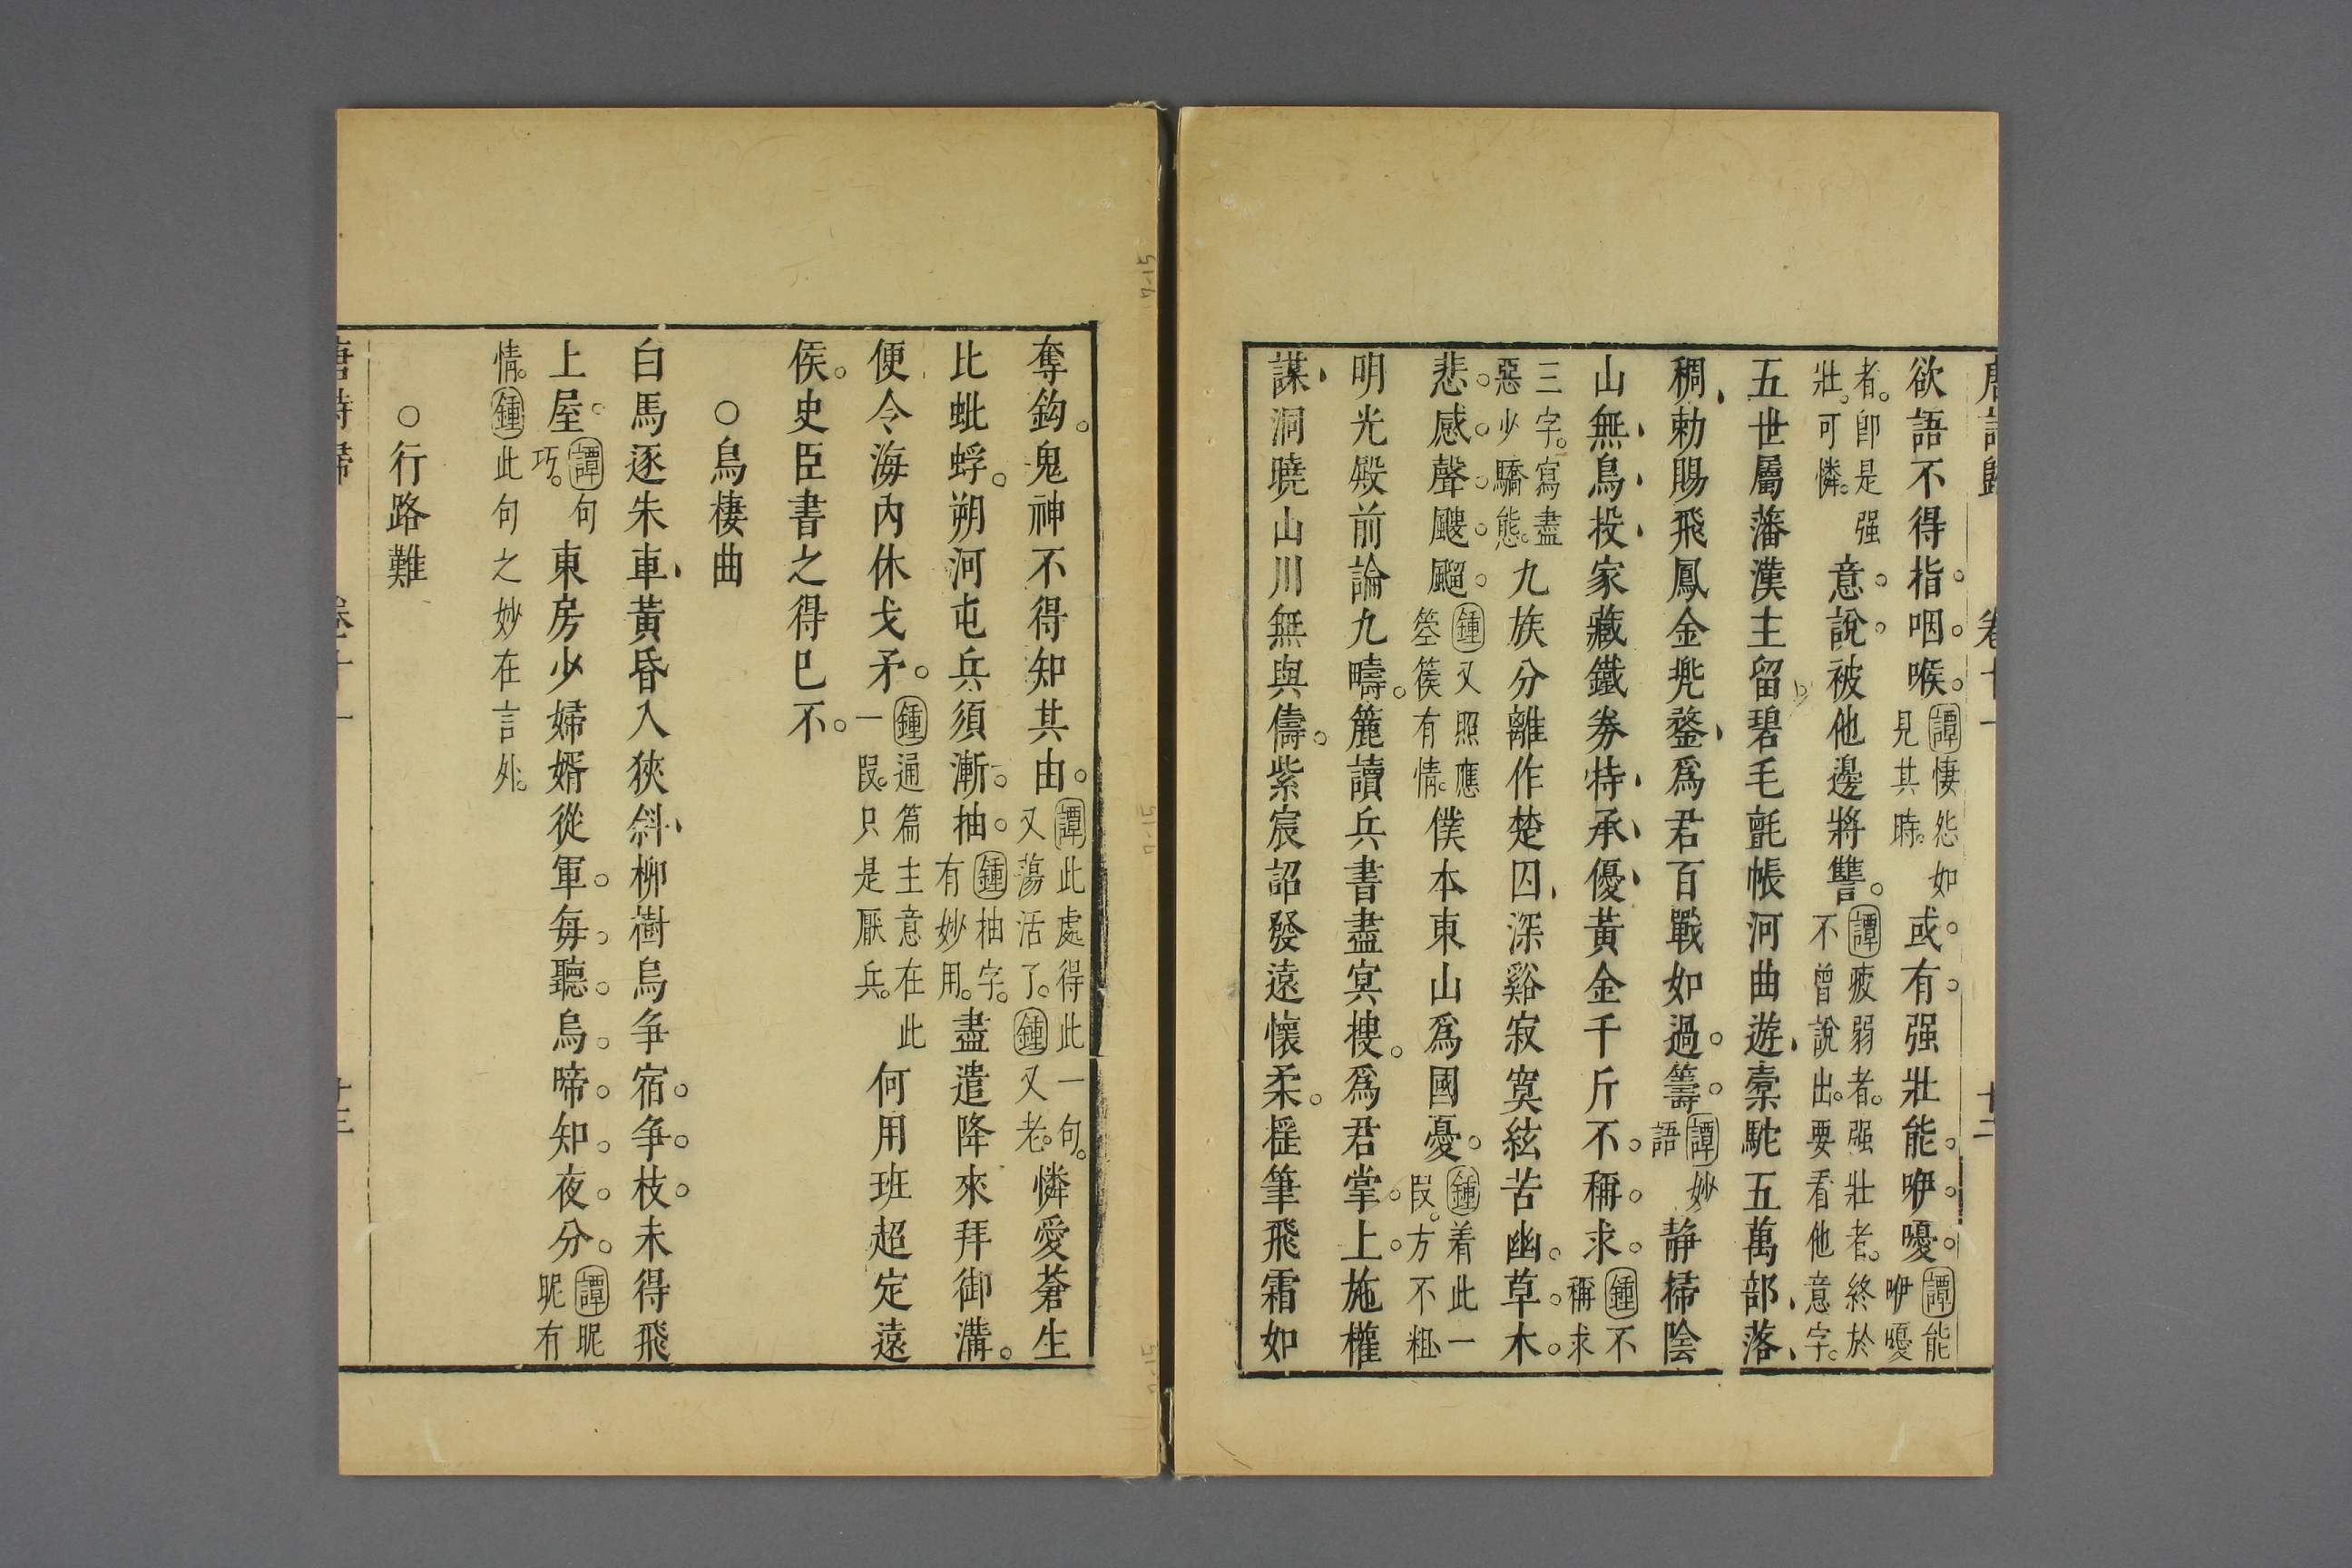 唐詩歸 卷十一 十二
欲語不得指咽喉譚悽怨如見其時或有强壯能咿嚘譚能咿嚘
者即是强壯可憐意說被他邊將讐譚疲弱者不曾說出要看他意字强壯者終於
五世屬藩漢主留碧毛氈帳河曲遊橐駝五萬部落
稠勅賜飛鳳金兜鍪爲君百戰如過籌譚妙語静掃陰
山無鳥投家藏鐵券特承優黃金千斤不稱求鍾不稱求
三字寫盡惡少驕態九族分離作楚囚深谿寂寞絃苦幽草木
悲感聲颼飀鍾又照應箜篌有情僕本東山爲國憂鍾着此一段方不粗
明光殿前論九疇簏讀兵書盡冥搜爲君掌上施權
謀洞曉山川無與儔紫宸詔發遠懷柔摇筆飛霜如
奪鈎鬼神不得知其由譚此處得此一句又蕩活了鍾又老憐愛蒼生
比蚍蜉朔河屯兵須漸抽鍾抽字有妙用盡遣降來拜御溝
便令海內休戈矛鍾通篇主意在此一段只是厭兵何用班超定遠
侯史臣書之得已不
○烏棲曲
白馬逐朱車黃昏入狹斜柳樹烏争宿争枝未得飛
上屋譚句巧東房少婦婿從軍每聽烏啼知夜分譚昵昵有
情鍾此句之妙在言外
○行路難
唐詩歸 卷十一 十三